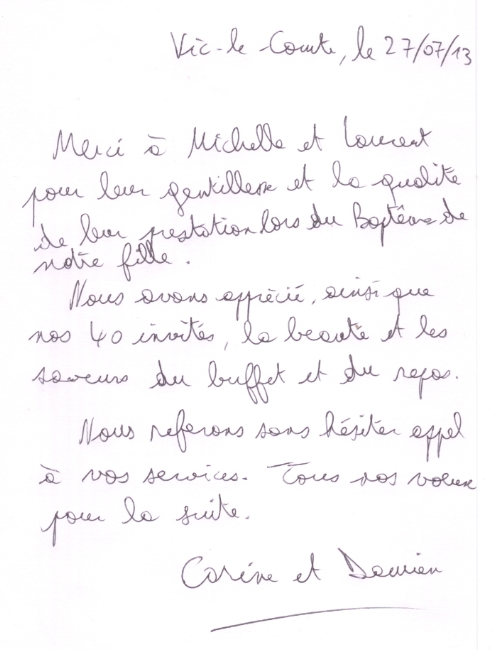 Vic-le-Comte, le 27/07/13
Merci à Michelle et Laurent
pour leur gentillesse et la qualité
de leur prestation lors du Baptême de
notre fille.
Nous avons apprécié, ainsi que
nos 40 invités, la beauté et les
saveurs du buffet et du repas.
Nous referons sans hésiter appel
à vos services. Tous nos voeux
pour la suite.
Carine et Damien